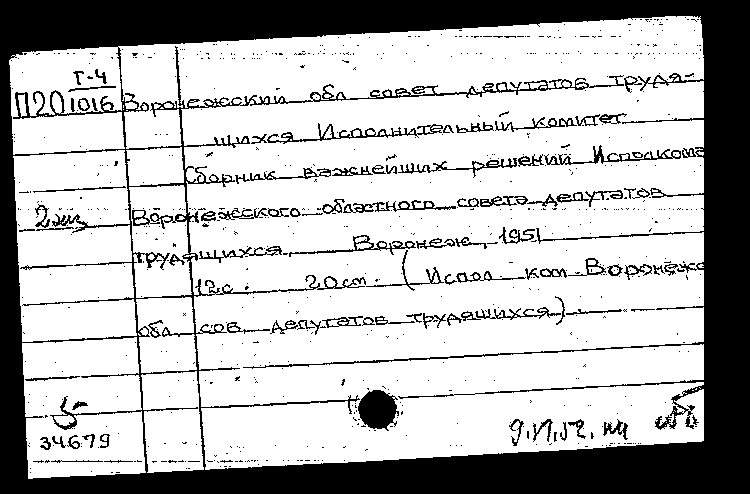 Г-4
П20 1016 Воронежский обл совет депутатов трудя-
щихся Исполнительный комитет
Сборник важнейших решений Исполкома
2 экз
Воронежского областного совета депутатов
трудящихся, Воронеж, 1951
12с. 20см. (Испол ком Воронежс
обл. сов. депутатов трудящихся).
5-
34679